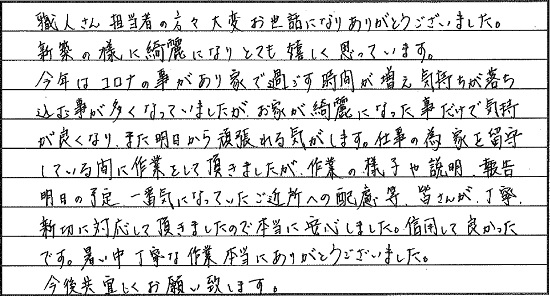 職人さん 担当者の方々 大変 お世話になりありがとうございました。
新築の様に綺麗になりとても嬉しく思っています。
今年はコロナの事があり家で過ごす時間が増え 気持ちが落ち
込む事が多くなっていましたが、お家が綺麗になった事だけで気持
が良くなり、また明日から頑張れる気がします。仕事の為 家を留守
している間に作業をして頂きましたが、作業の様子や説明、報告
明日の予定、一番気になっていたご近所への配慮等、皆さんが、丁寧、
親切に対応して頂きましたので本当に安心しました。信用して良かった
です。暑い中 丁寧な作業 本当にありがとうございました。
今後共宜しくお願い致します。